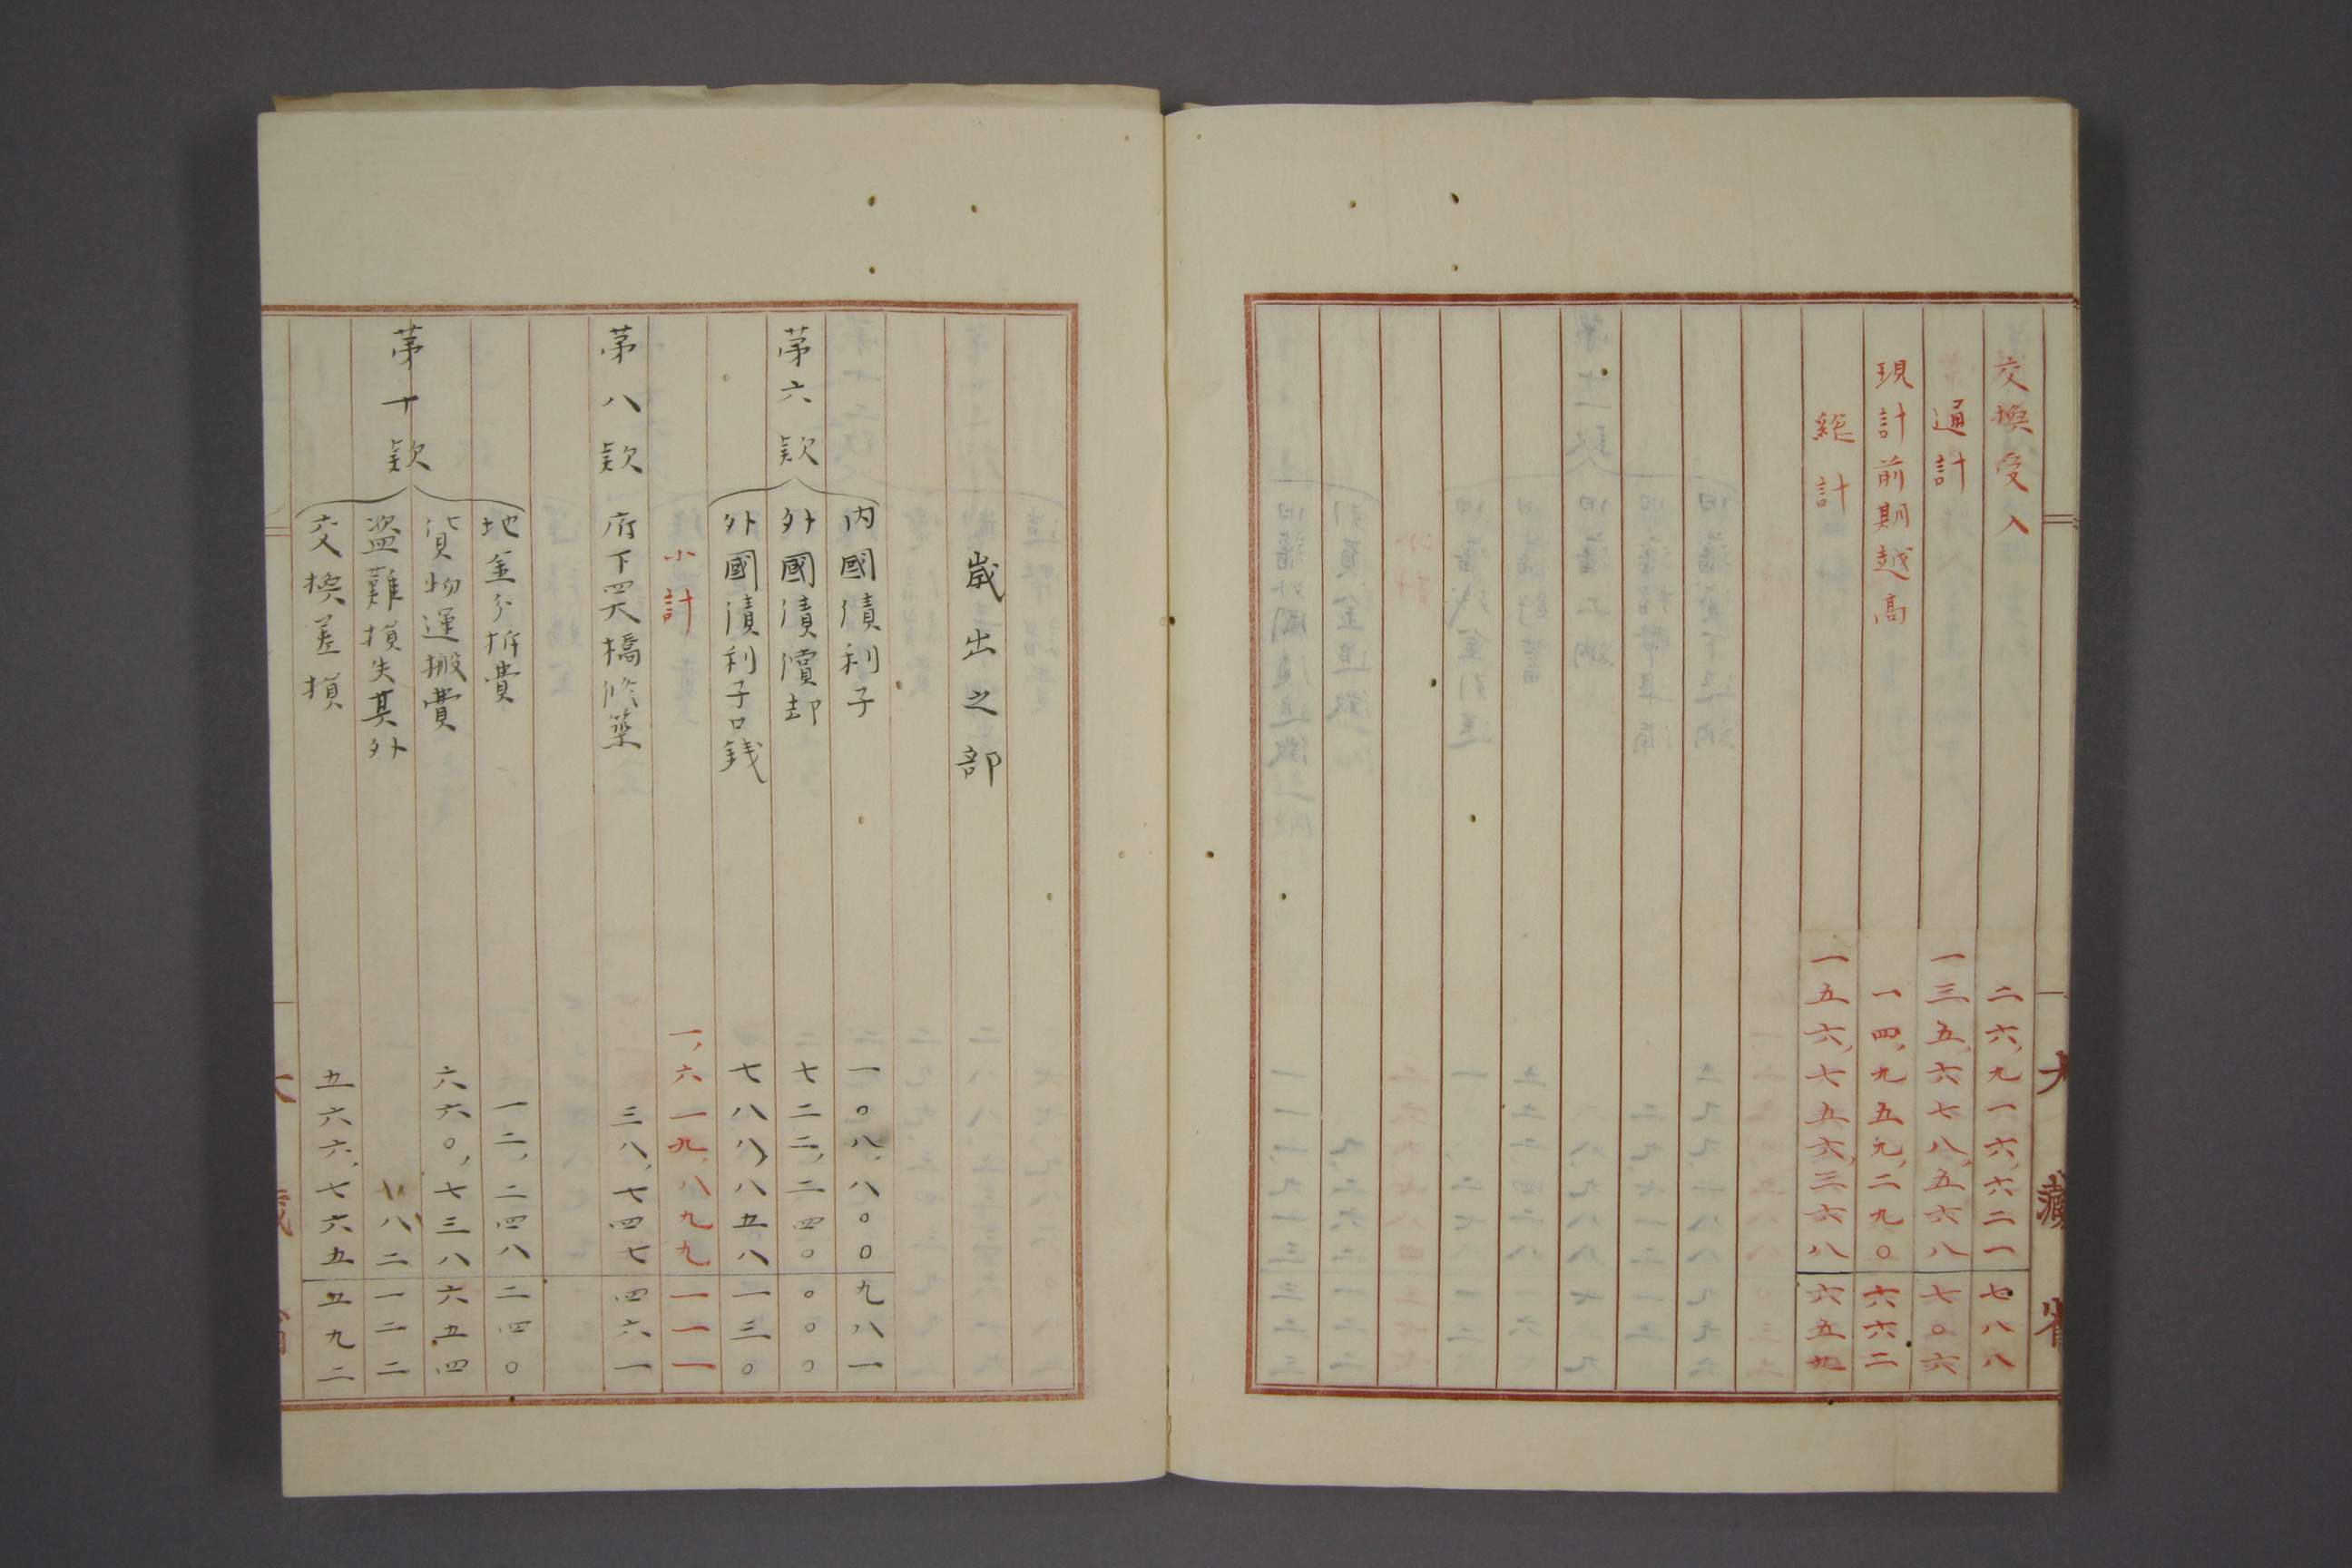 交換受入 二六,九一六,六二一 七八八
通計 一三五,六七八,五六八 七〇六
現計前期越高 一四,九五九,二九〇 六六二
総計 一五六,七五六,三六八 六五九
大藏省
歳出之部
第六款
内國債利子 一〇八,八〇〇 九八一
外國債償却 七二二,二四〇 〇〇〇
外國債利子口銭 七八八,八五八 一三〇
小計 一,六一九,八九九 一一一
第八款 府下四大橋修築 三八,七四七 四六一
第十款
地金分析費 一二,二四八 二四〇
貨物運搬費 六六〇,七三八 六五四
盗難損失其外 八二 一二二
交換差損 五六六,七六五 五九二